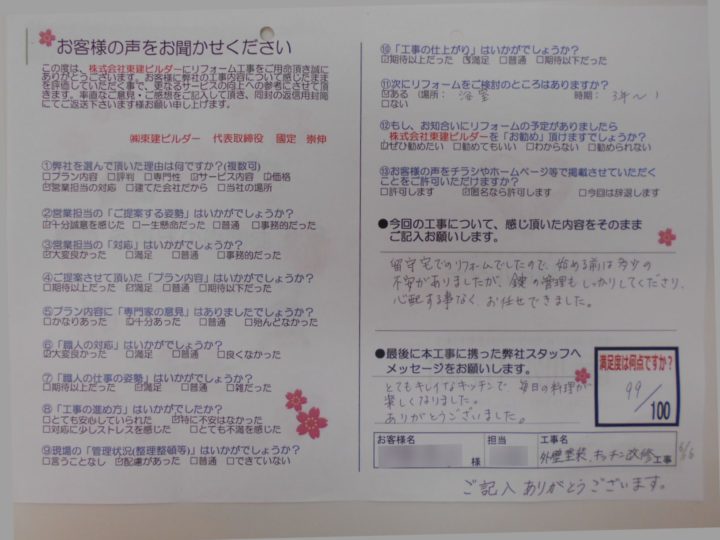 お客様の声をお聞かせください
この度は、株式会社東建ビルダーにリフォーム工事をご用命頂き誠に
ありがとうございます。お客様に弊社の工事内容について感じたまま
を評価していただく事で、更なるサービスの向上への参考にさせて頂
きます。率直なご意見・ご感想をご記入して頂き、同封の返信用封筒
にてご返送下さいます様お願い申し上げます。
㈱東建ビルダー 代表取締役 國定 崇伸
①弊社を選んで頂いた理由は何ですか?(複数可)
□プラン内容 □評判 □専門性 ☑サービス内容 ☑価格
☑営業担当の対応 □建てた会社だから □当社の場所
②営業担当の「ご提案する姿勢」はいかがでしょうか?
☑十分誠意を感じた □一生懸命だった □普通 □事務的だった
③営業担当の「対応」はいかがでしょうか?
☑大変良かった □満足 □普通 □事務的だった
④ご提案させて頂いた「プラン内容」はいかがでしょうか?
□期待以上だった ☑満足 □普通 □期待以下だった
⑤プラン内容に「専門家の意見」はありましたでしょうか?
□かなりあった ☑十分あった □普通 □殆んどなかった
⑥「職人の対応」はいかがでしょうか?
☑大変良かった □満足 □普通 □良くなかった
⑦「職人の仕事の姿勢」はいかがでしょうか?
□期待以上だった ☑満足 □普通 □雑だった
⑧「工事の進め方」はいかがでしたか?
□とても安心していられた ☑特に不安はなかった
□対応に少しストレスを感じた □とても不満を感じた
⑨現場の「管理状況(整理整頓等)」はいかがでしょうか?
□言うことなし ☑配慮があった □普通 □できていない
⑩「工事の仕上がり」はいかがでしょうか?
☑期待以上だった ☑満足 □普通 □期待以下だった
⑪次にリフォームをご検討のところはありますか?
☑ある (場所: 浴室 時期: 3年~ )
□ない
⑫もし、お知合いにリフォームの予定がありましたら
株式会社東建ビルダーを「お勧め」頂けますでしょうか?
☑ぜひ勧めたい □勧めてもいい □わからない □勧められない
⑬お客様の声をチラシやホームページ等で掲載させていただく
ことをご許可いただけますか?
□許可します ☑匿名なら許可します □今回は辞退します
●今回の工事について、感じ頂いた内容をそのまま
ご記入お願いします。
留守宅でのリフォームでしたので、始める前は多少の
不安がありましたが、鍵の管理もしっかりしてくださり、
心配する事なく、お任せできました。
●最後に本工事に携った弊社スタッフへ
メッセージをお願いします。
とてもキレイなキッチンで 毎日の料理が
楽しくなりました。
ありがとうございました。
満足度は何点ですか?
99/100
お客様名 様
担当
工事名
外壁塗装、キッチン改修工事
ご記入ありがとうございます。